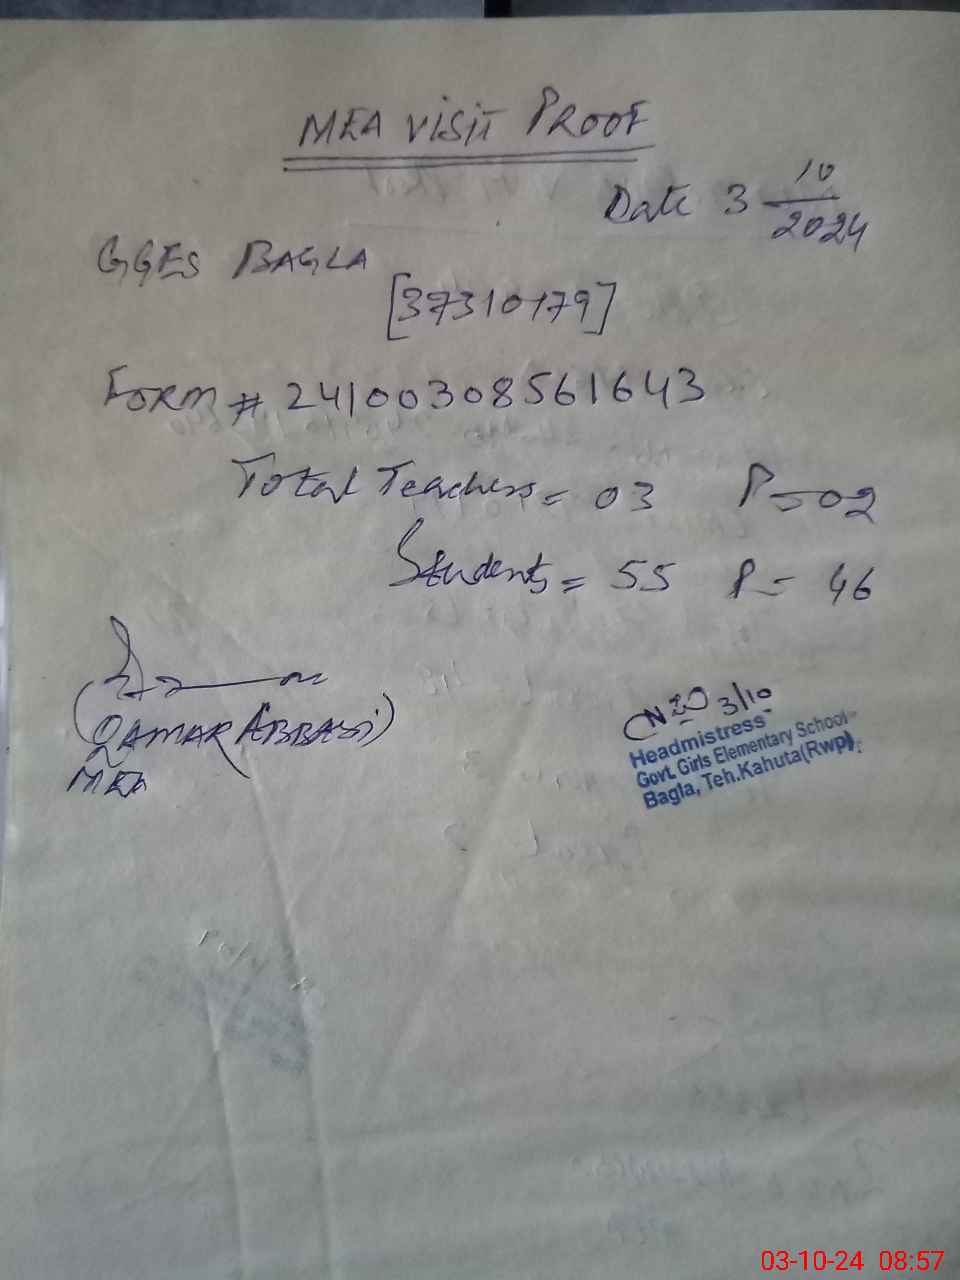 MEA VISIT PROOF
Date 3 10/2024
GGES BAGLA
[37310179]
Form # 24100308561643
Total Teachers = 03 P=02
Students = 55 P= 46
(QAMAR ABBASI)
MEA
3/10
Headmistress
Govt. Girls Elementary School
Bagla, Teh.Kahuta(Rwp)
03-10-24 08:57